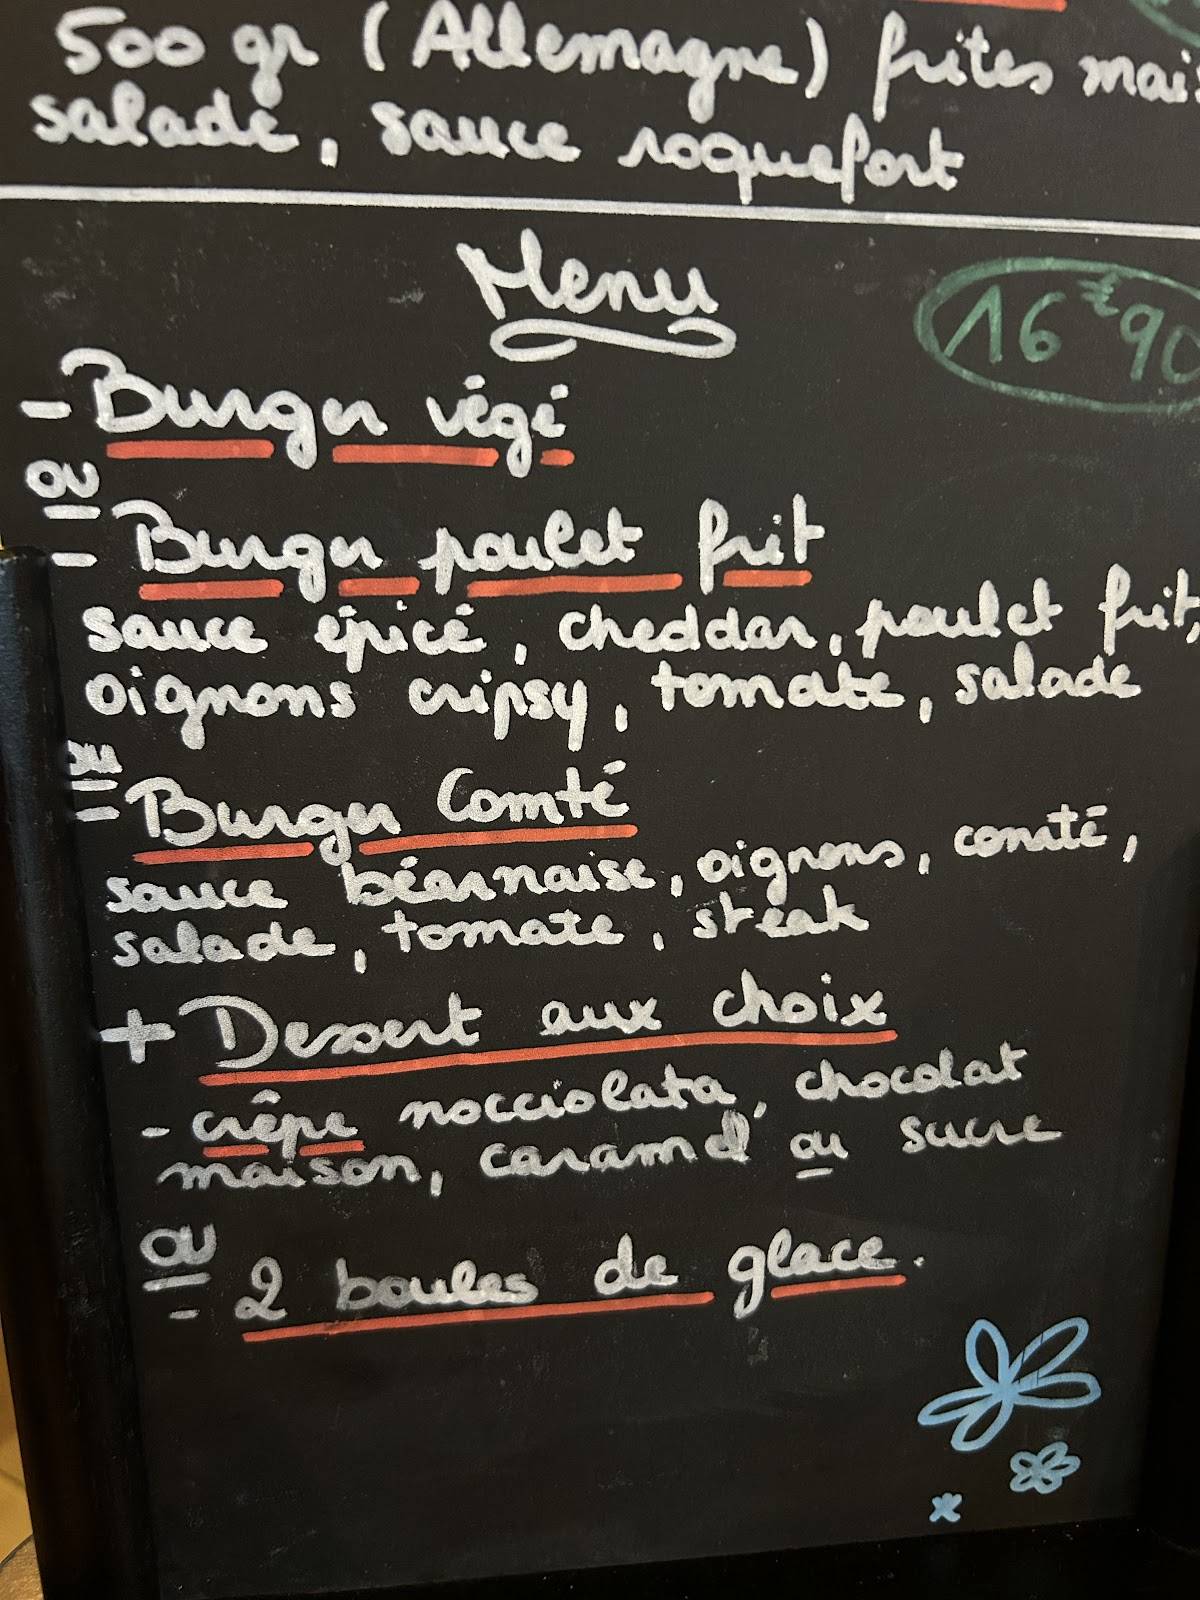 500 gr (Allemagne) frites mais
salade, sauce roquefort
Menu
16€90
- Burger végé
ou
- Burger poulet frit
sauce épicé, cheddar, poulet frit,
oignons cripsy, tomate, salade
ou
- Burger Comté
sauce béarnaise, oignons, comté,
salade, tomate, steak
+ Dessert aux choix
- crêpe nocciolata, chocolat
maison, caramel ou sucre
ou
- 2 boules de glace.